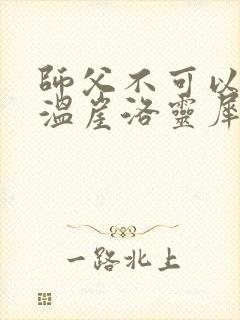 師父不可以
溫崖洛靈犀
一路北上